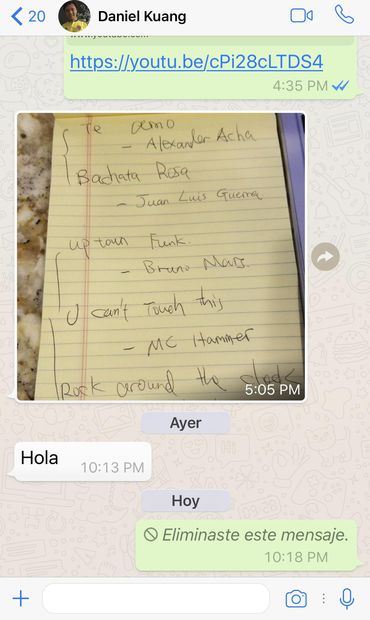 20
Daniel Kuang
www.youtube.com
https://youtu.be/cPi28cLTDS4
4:35 PM
Te amo
- Alexander Acha
Bachata Rosa
- Juan Luis Guerra
uptown Funk.
- Bruno Mars.
U can't Touch this
- MC Hammer
Rock around the clock
5:05 PM
Ayer
Hola
10:13 PM
Hoy
Eliminaste este mensaje.
10:18 PM